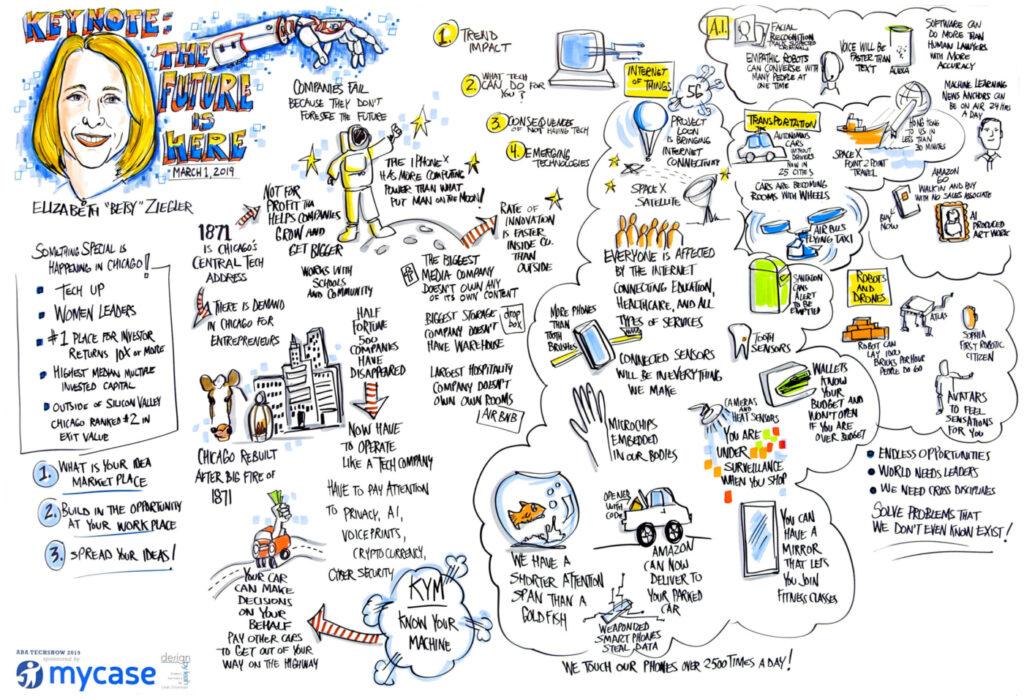 KEYNOTE:
THE
FUTURE
IS
HERE
MARCH 1, 2019
ELIZABETH "BETSY" ZIEGLER
SOMETHING SPECIAL IS
HAPPENING IN CHICAGO!
TECH UP
WOMEN LEADERS
#1 PLACE FOR INVESTOR
RETURNS 10X OR MORE
HIGHEST MEDIAN MULTIPLE
INVESTED CAPITAL
OUTSIDE OF SILICON VALLEY
CHICAGO RANKED #2 IN
EXIT VALUE
1. WHAT IS YOUR IDEA
MARKET PLACE
2. BUILD IN THE OPPORTUNITY
AT YOUR WORK PLACE
3. SPREAD YOUR IDEAS!
COMPANIES FAIL
BECAUSE THEY DON'T
FORESEE THE FUTURE
THE IPHONE X
HAS MORE COMPUTING
POWER THAN WHAT
PUT MAN ON THE MOON!
NOT FOR
PROFIT THA
HELPS COMPANIES
GROW AND
GET BIGGER
1871
IS CHICAGO'S
CENTRAL TECH
ADDRESS
WORKS WITH
SCHOOLS
AND COMMUNITY
THERE IS DEMAND
IN CHICAGO FOR
ENTREPRENEURS
RATE OF
INNOVATION IS
FASTER
INSIDE CO.
THAN
OUTSIDE
THE BIGGEST
MEDIA COMPANY
DOESN'T OWN ANY
OF ITS OWN CONTENT
BIGGEST STORAGE
COMPANY DOESN'T
HAVE WAREHOUSE
drop
box
LARGEST HOSPITALITY
COMPANY DOESN'T
OWN OWN ROOMS
AIR BNB
HALF
FORTUNE
500
COMPANIES
HAVE
DISAPPEARED
NOW HAVE
TO OPERATE
LIKE A TECH COMPANY
CHICAGO REBUILT
AFTER BIG FIRE OF
1871
HAVE TO PAY ATTENTION
TO PRIVACY, AI,
VOICEPRINTS,
CRYPTOCURRENCY,
CYBER SECURITY
KYM
KNOW YOUR
MACHINE
YOUR CAR
CAN MAKE
DECISIONS
ON YOUR
BEHALF
PAY OTHER CARS
TO GET OUT OF YOUR
WAY ON THE HIGHWAY
1. TREND
IMPACT
2. WHAT TECH
CAN DO FOR
YOU?
3. CONSEQUENCES
OF NOT HAVING TECH
4. EMERGING
TECHNOLOGIES
INTERNET
OF THINGS
5G
PROJECT
LOON IS
BRINGING
INTERNET
CONNECTIVITY
SPACE X
SATELLITE
EVERYONE IS AFFECTED
BY THE INTERNET
CONNECTING EDUCATION,
HEALTHCARE, AND ALL
TYPES OF SERVICES
MORE PHONES
THAN
TOOTH
BRUSHES
CONNECTED SENSORS
WILL BE IN EVERYTHING
WE MAKE
TOOTH
SENSORS
MICROCHIPS
EMBEDDED
IN OUR BODIES
CAMERAS
AND
HEAT SENSORS
YOU ARE
UNDER
SURVEILLANCE
WHEN YOU SHOP
WALLETS
KNOW
YOUR
BUDGET AND
WON'T OPEN
IF YOU ARE
OVER BUDGET
WE HAVE A
SHORTER ATTENTION
SPAN THAN A
GOLDFISH
OPENED
WITH
CODE
AMAZON
CAN NOW
DELIVER TO
YOUR PARKED
CAR
WEAPONIZED
SMART PHONES
STEAL DATA
YOU CAN
HAVE A
MIRROR
THAT LETS
YOU JOIN
FITNESS CLASSES
WE TOUCH OUR PHONES OVER 2500 TIMES A DAY!
A.I.
FACIAL
RECOGNITION
EMPATHIC ROBOTS
CAN CONVERSE WITH
MANY PEOPLE AT
ONE TIME
VOICE WILL BE
FASTER THAN
TEXT
ALEXA
SOFTWARE CAN
DO MORE THAN
HUMAN LAWYERS
WITH MORE
ACCURACY
MACHINE LEARNING
NEWS ANCHORS CAN
BE ON AIR 24 HRS
A DAY
TRANSPORTATION
AUTONOMOUS
CARS
WITHOUT
DRIVERS
NOW IN
25 CITIES
SPACE X
POINT 2 POINT
TRAVEL
HONG KONG
TO US IN
LESS THAN
30 MINUTES
CARS ARE BECOMING
ROOMS WITH WHEELS
AIR BUS
FLYING TAXI
AMAZON
GO
WALK IN AND BUY
WITH NO SALES ASSOCIATE
BUY
NOW
AI
PRODUCED
ART WORK
SANITATION
CANS
ALERT TO
BE
EMPTIED
ROBOTS
AND
DRONES
ATLAS
SOPHIA
FIRST ROBOTIC
CITIZEN
ROBOT CAN
LAY 1000
BRICKS PER HOUR
PEOPLE DO 60
AVATARS
TO FEEL
SENSATIONS
FOR YOU
ENDLESS OPPORTUNITIES
WORLD NEEDS LEADERS
WE NEED CROSS DISCIPLINES
SOLVE PROBLEMS THAT
WE DON'T EVEN KNOW EXIST!
ABA TECHSHOW 2019
sponsored by
mycase
design
by leah